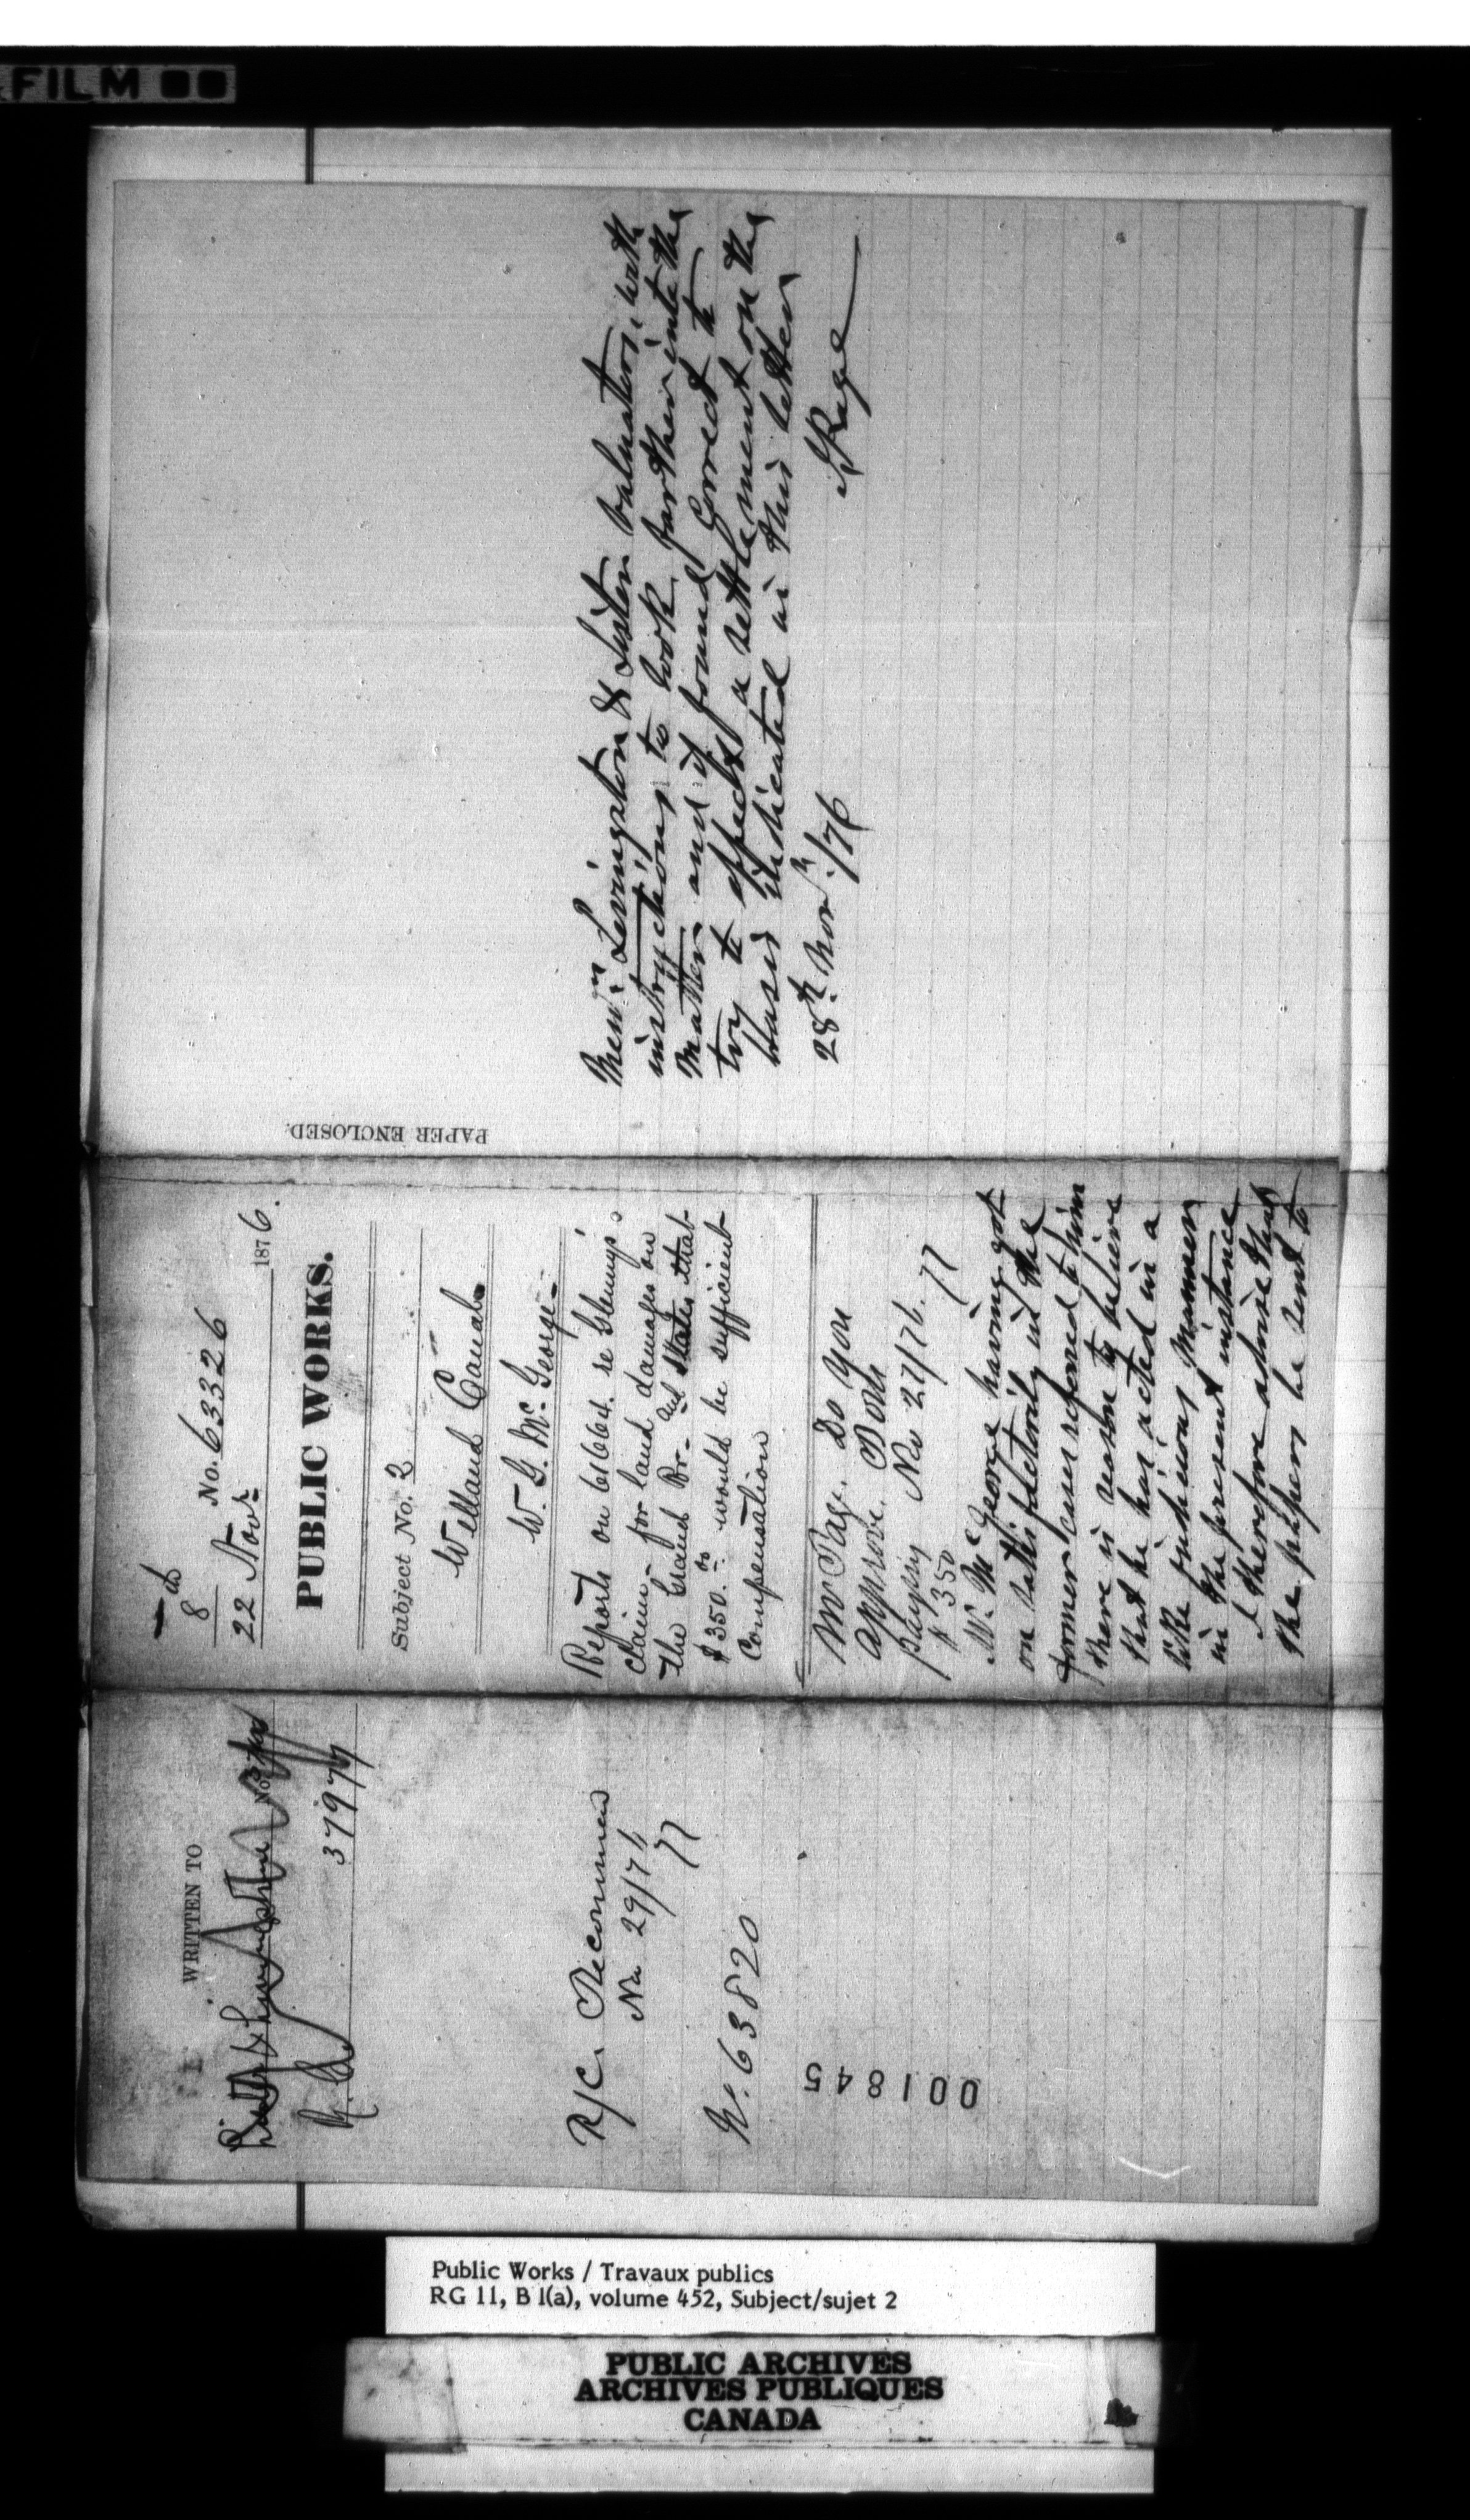 FILM
WRITTEN TO
No.
37977
R/C. Recommen
No 29/76
77
No. 63820
001845
8
No. 63326
22 Novr. 1876.
PUBLIC WORKS.
Subject No. 2
Welland Canal
W. G. McGeorge
Reports on 61664. re
claim - for land damages on
the Grand Br. - and states that
$350.00 would be sufficient
Compensation
Mr Page. Do you
approve. Both
paying No 27/76. 77
$350
Mr. McGeorge having got
on satisfactorily in the
former cases referred to him
there is reason to believe
that he has acted in a
like judicious manner
in the present instance
I therefore advise that
the papers be sent to
PAPER ENCLOSED.
Messrs. Livingston & Lister valuators with
instructions to look further into the
matter and if found correct to
try to effect a settlement on the
basis indicated in this letter
28th Novr./76 J Page
Public Works / Travaux publics
RG 11, B 1(a), volume 452, Subject/sujet 2
PUBLIC ARCHIVES
ARCHIVES PUBLIQUES
CANADA